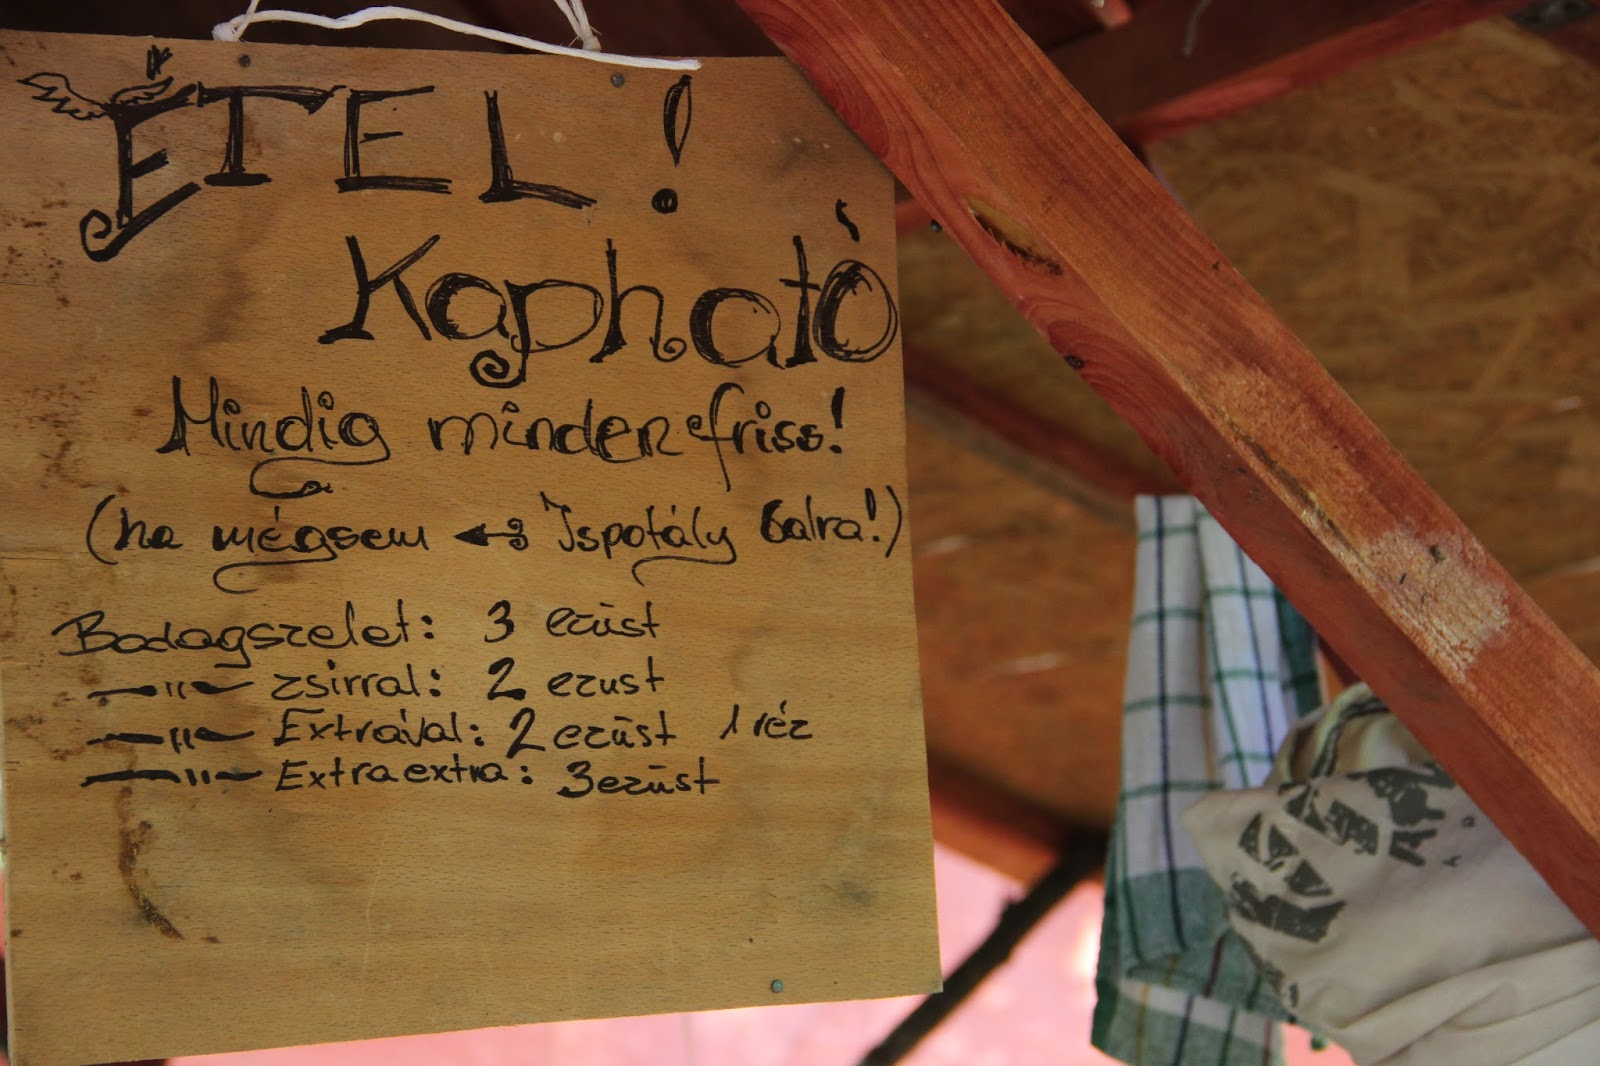 ÉTEL!
Kapható
Mindig minden friss!
(ha mégsem ← Ispotály balra!)
Bodagszelet: 3 ezüst
—〃— zsírral: 2 ezust
—〃— Extrával: 2 ezüst 1 réz
—〃— Extraextra: 3 ezüst